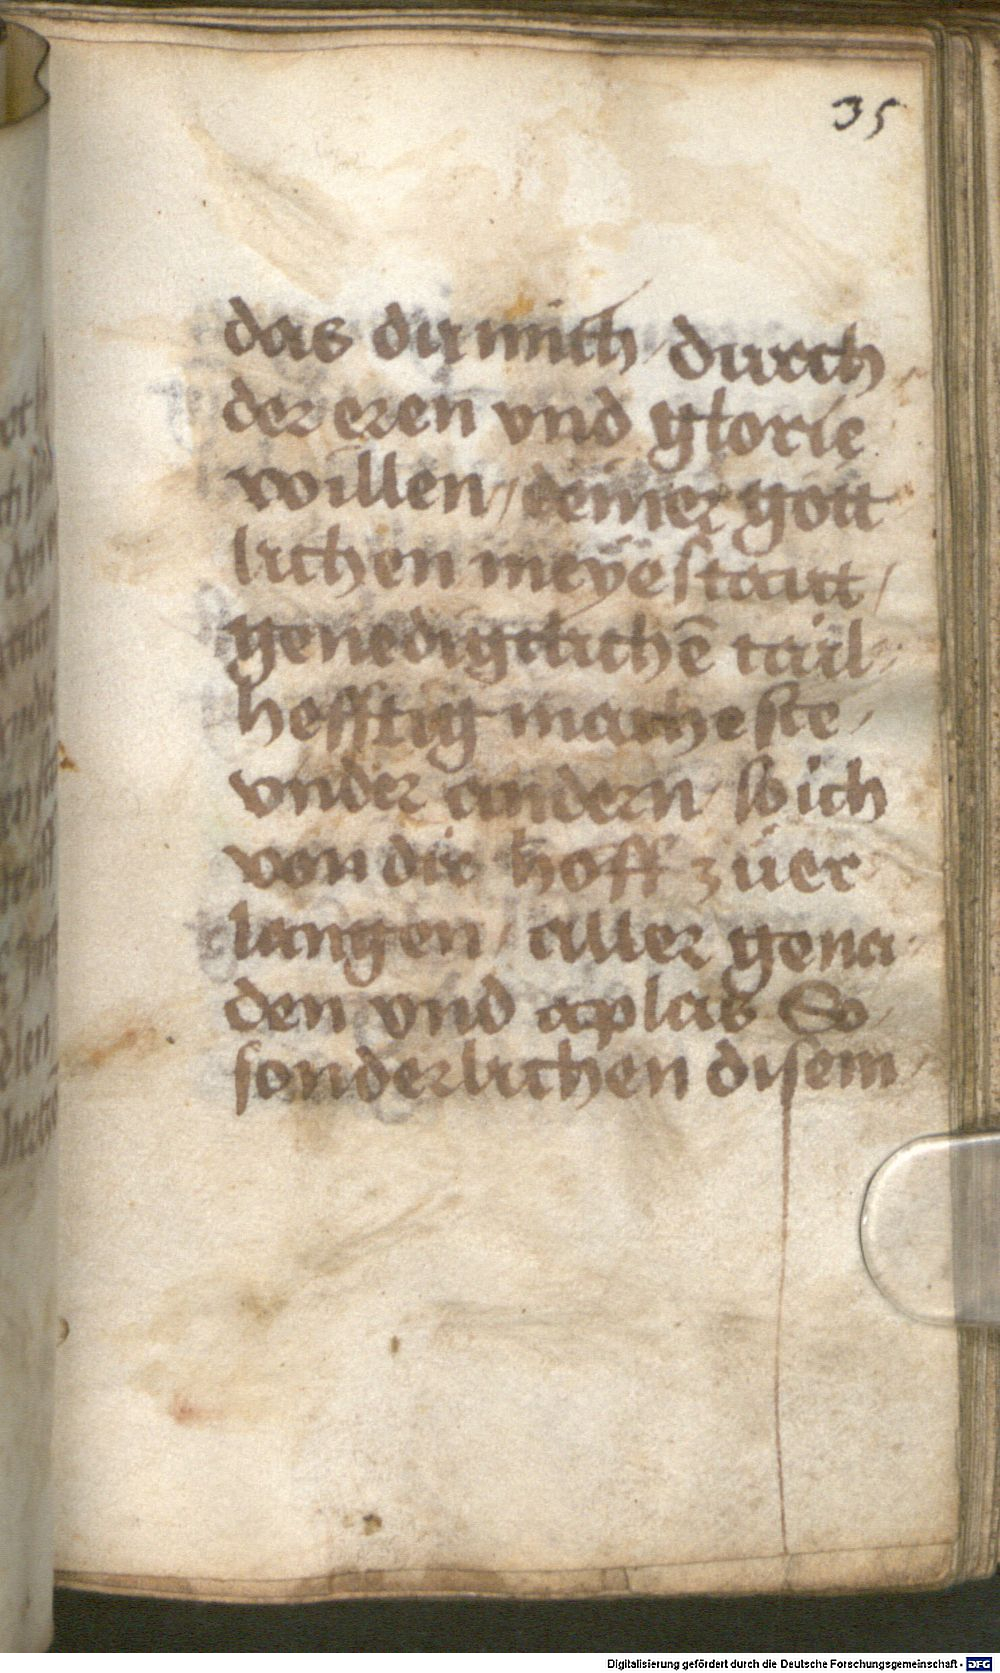 35
das du mich durch
der eren vnd glorie
willen / deiner gott
lichen meyestautt /
genediglichē tail
hefftig macheste /
vnder andern / so ich
von dir hoff zuer
langen / aller gena
den vnd aplas So
sonderlichen disem
Digitalisierung gefördert durch die Deutsche Forschungsgemeinschaft - DFG